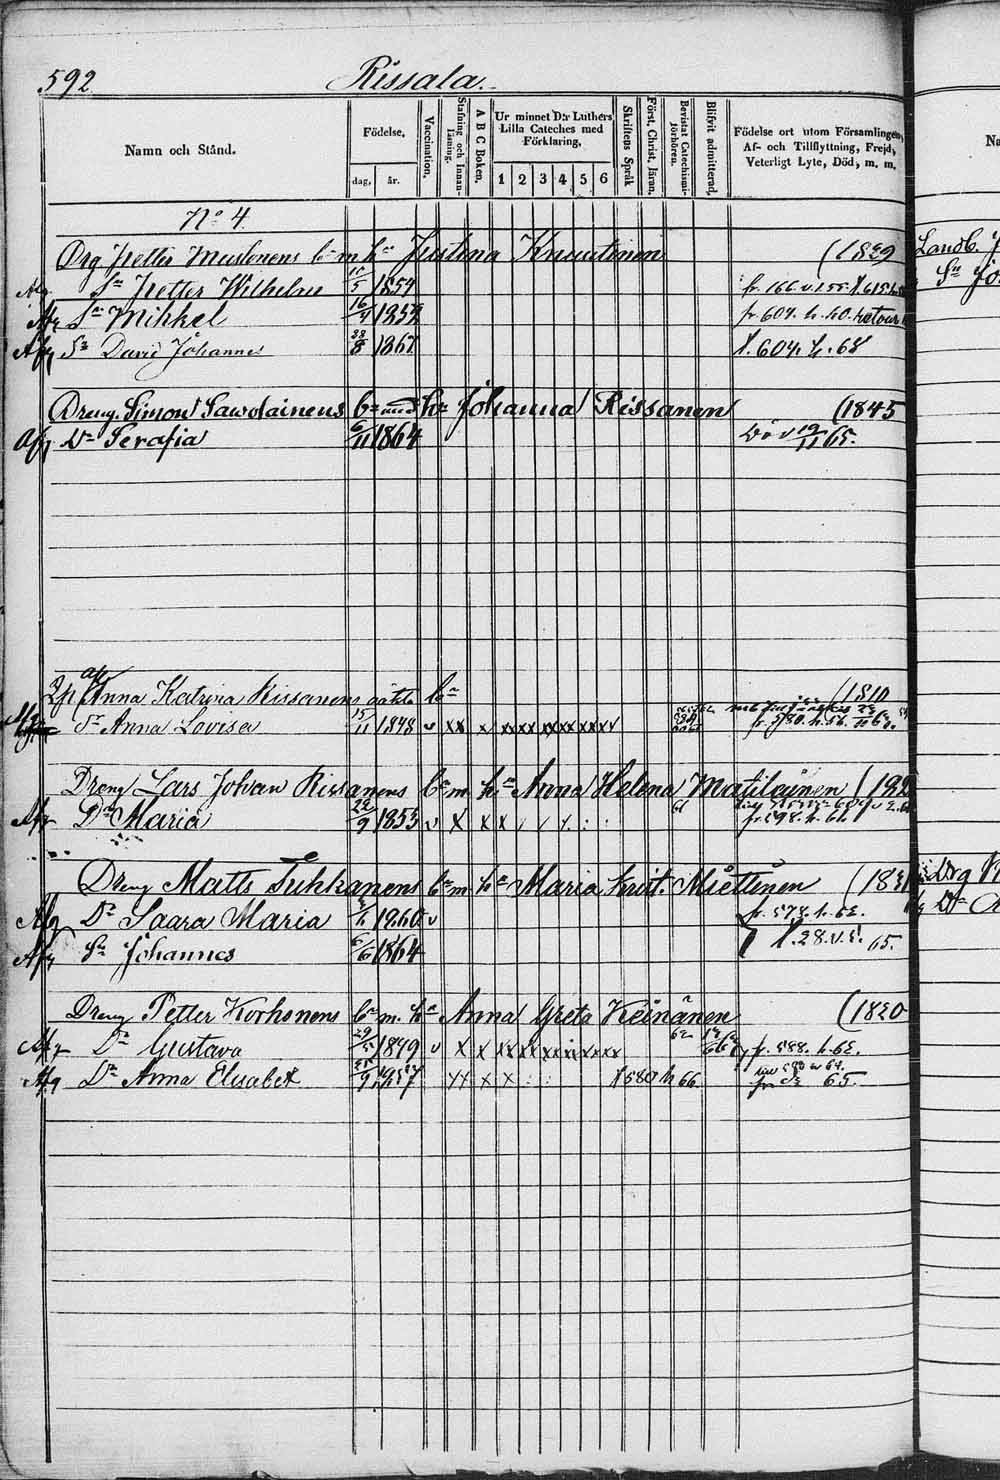 592 Rissala.
Namn och Stånd.
Födelse,
dag, år.
Vaccination.
Stafning och Innanläsning.
A B C Boken.
Ur minnet D:r Luthers Lilla Cateches med Förklaring,
1 2 3 4 5 6
Skriftens Språk
Först. Christ. Järan.
Bevistat Catechismiförhören.
Blifvit admitterad,
Födelse ort utom Församlingen,
Af- och Tillflyttning, Frejd,
Veterligt Lyte, Död, m. m.
No 4.
Drg Petter Mustonens bn m hn Justina Knuutinen (1829
Sn Petter Wilhelm 10/5 1854
Afg Sn Mihkel 16/4 1858 fr. 604. h. 60. retour
Afg Sn David Johannes 28/8 1861 X. 604. h. 68
Dreng. Simon Sawolainens bn med hn Johanna Rissanen (1845
Afg Dr Serafia 6/11 1864 Död 19/11 65.
Anna Katrina Rissanens oäkta bn (1810
Dr Anna Lovisa 15/11 1848 v xx x xx xx xx xx xx
fr. 580. h. 56.
Dreng Lars Johan Rissanens bn m. hn Anna Helena Matilainen (182
Dr Maria 22/9 1853 v x x x
61 fr. 598. h. 61.
Dreng Matts Tuhkanens bn m hn Maria Krist. Miettinen (1831
Afg Dr Saara Maria 1860 v fr. 578. h. 63.
Afg Sn Johannes 6/6 1864 X. 28. v. 65.
Dreng Petter Korhonens bn m. hn Anna Greta Keinänen (1820
Dr Gustava 29/5 1849 v x x xx xx xx xx xx xx 62 fr. 588. h. 63.
Afg Dr Anna Elisabet 1857 xx x x X 580 h 66. 65.
Landb.
Sn Jo
Drg
Dr
Na